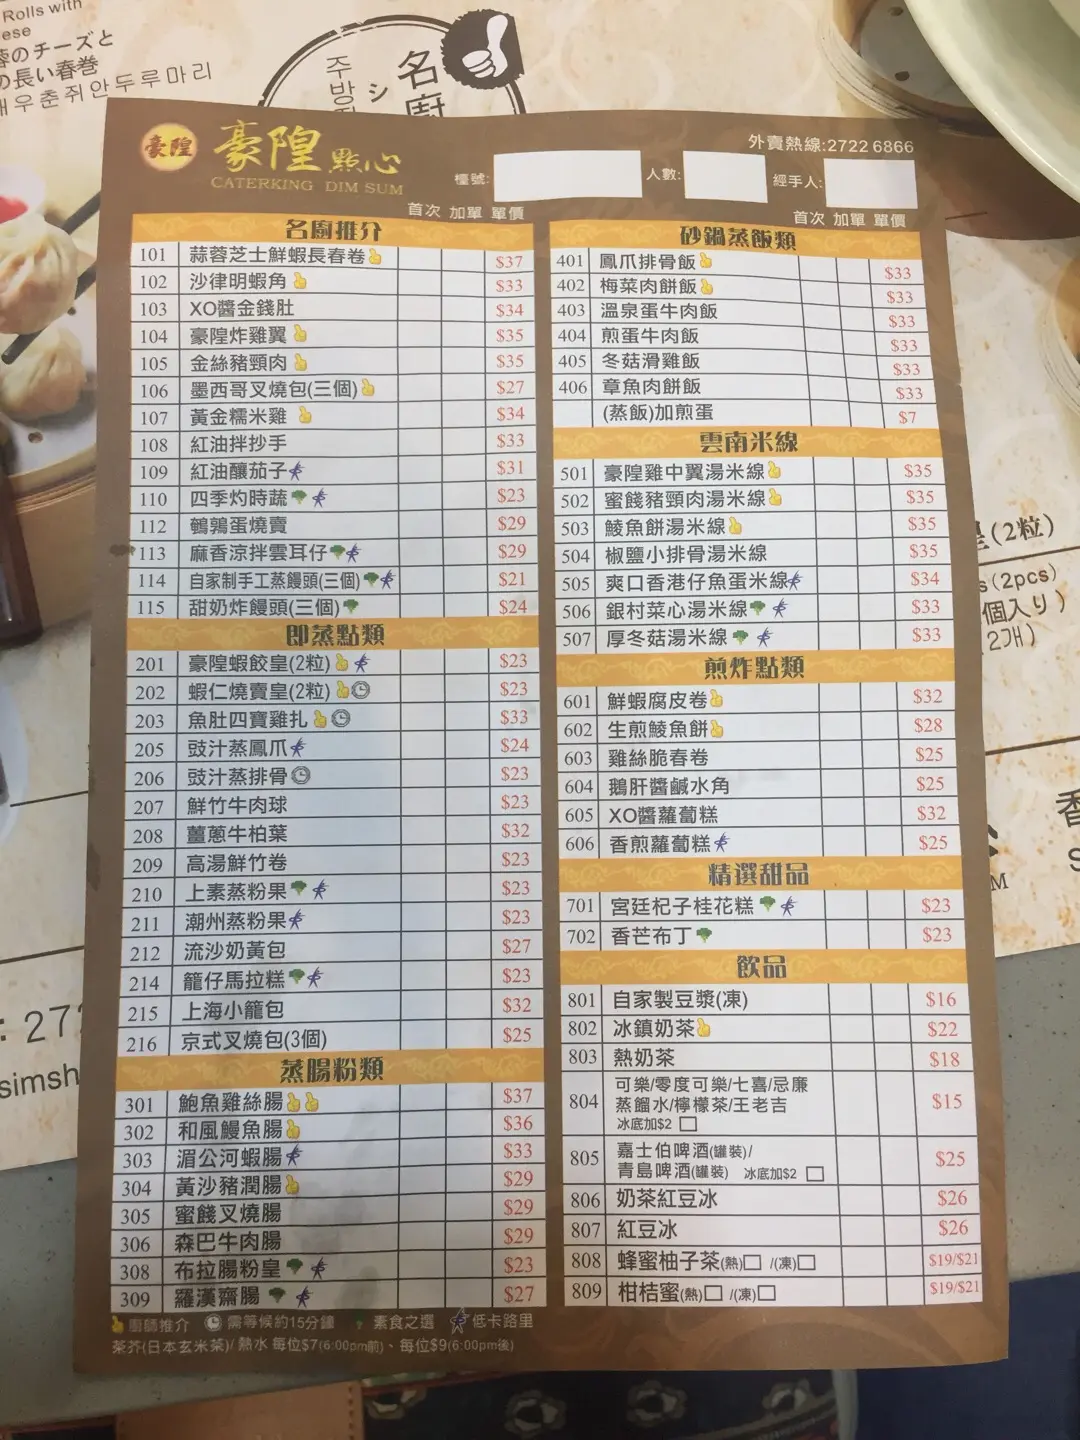 Rolls with
のチーズと
の長い春巻
새우춘쥐안두루마리
名廚
주방
シ
豪隍
豪隍 點心
CATERKING DIM SUM
外賣熱線:2722 6866
檯號:
人數:
經手人:
首次 加單 單價
名廚推介
101 蒜蓉芝士鮮蝦長春卷 $37
102 沙律明蝦角 $33
103 XO醬金錢肚 $34
104 豪隍炸雞翼 $35
105 金絲豬頸肉 $35
106 墨西哥叉燒包(三個) $27
107 黃金糯米雞 $34
108 紅油拌抄手 $33
109 紅油釀茄子 $31
110 四季灼時蔬 $23
112 鵪鶉蛋燒賣 $29
113 麻香涼拌雲耳仔 $29
114 自家制手工蒸饅頭(三個) $21
115 甜奶炸饅頭(三個) $24
即蒸點類
201 豪隍蝦餃皇(2粒) $23
202 蝦仁燒賣皇(2粒) $23
203 魚肚四寶雞扎 $33
205 豉汁蒸鳳爪 $24
206 豉汁蒸排骨 $23
207 鮮竹牛肉球 $23
208 薑蔥牛柏葉 $32
209 高湯鮮竹卷 $23
210 上素蒸粉果 $23
211 潮州蒸粉果 $23
212 流沙奶黃包 $27
214 籠仔馬拉糕 $23
215 上海小籠包 $32
216 京式叉燒包(3個) $25
蒸腸粉類
301 鮑魚雞絲腸 $37
302 和風鰻魚腸 $36
303 湄公河蝦腸 $33
304 黃沙豬潤腸 $29
305 蜜餞叉燒腸 $29
306 森巴牛肉腸 $29
308 布拉腸粉皇 $23
309 羅漢齋腸 $27
首次 加單 單價
砂鍋蒸飯類
401 鳳爪排骨飯 $33
402 梅菜肉餅飯 $33
403 溫泉蛋牛肉飯 $33
404 煎蛋牛肉飯 $33
405 冬菇滑雞飯 $33
406 章魚肉餅飯 $33
(蒸飯)加煎蛋 $7
雲南米線
501 豪隍雞中翼湯米線 $35
502 蜜餞豬頸肉湯米線 $35
503 鯪魚餅湯米線 $35
504 椒鹽小排骨湯米線 $35
505 爽口香港仔魚蛋米線 $34
506 銀村菜心湯米線 $33
507 厚冬菇湯米線 $33
煎炸點類
601 鮮蝦腐皮卷 $32
602 生煎鯪魚餅 $28
603 雞絲脆春卷 $25
604 鵝肝醬鹹水角 $25
605 XO醬蘿蔔糕 $32
606 香煎蘿蔔糕 $25
精選甜品
701 宮廷杞子桂花糕 $23
702 香芒布丁 $23
飲品
801 自家製豆漿(凍) $16
802 冰鎮奶茶 $22
803 熱奶茶 $18
804 可樂/零度可樂/七喜/忌廉
蒸餾水/檸檬茶/王老吉 $15
冰底加$2
805 嘉士伯啤酒(罐裝)/ $25
青島啤酒(罐裝) 冰底加$2
806 奶茶紅豆冰 $26
807 紅豆冰 $26
808 蜂蜜柚子茶(熱) /(凍) $19/$21
809 柑桔蜜(熱) /(凍) $19/$21
廚師推介 需等候約15分鐘 素食之選 低卡路里
茶芥(日本玄米茶)/ 熱水 每位$7(6:00pm前)、每位$9(6:00pm後)
(2粒)
(2pcs)
個入り)
2개)
香
M
: 272
simsh